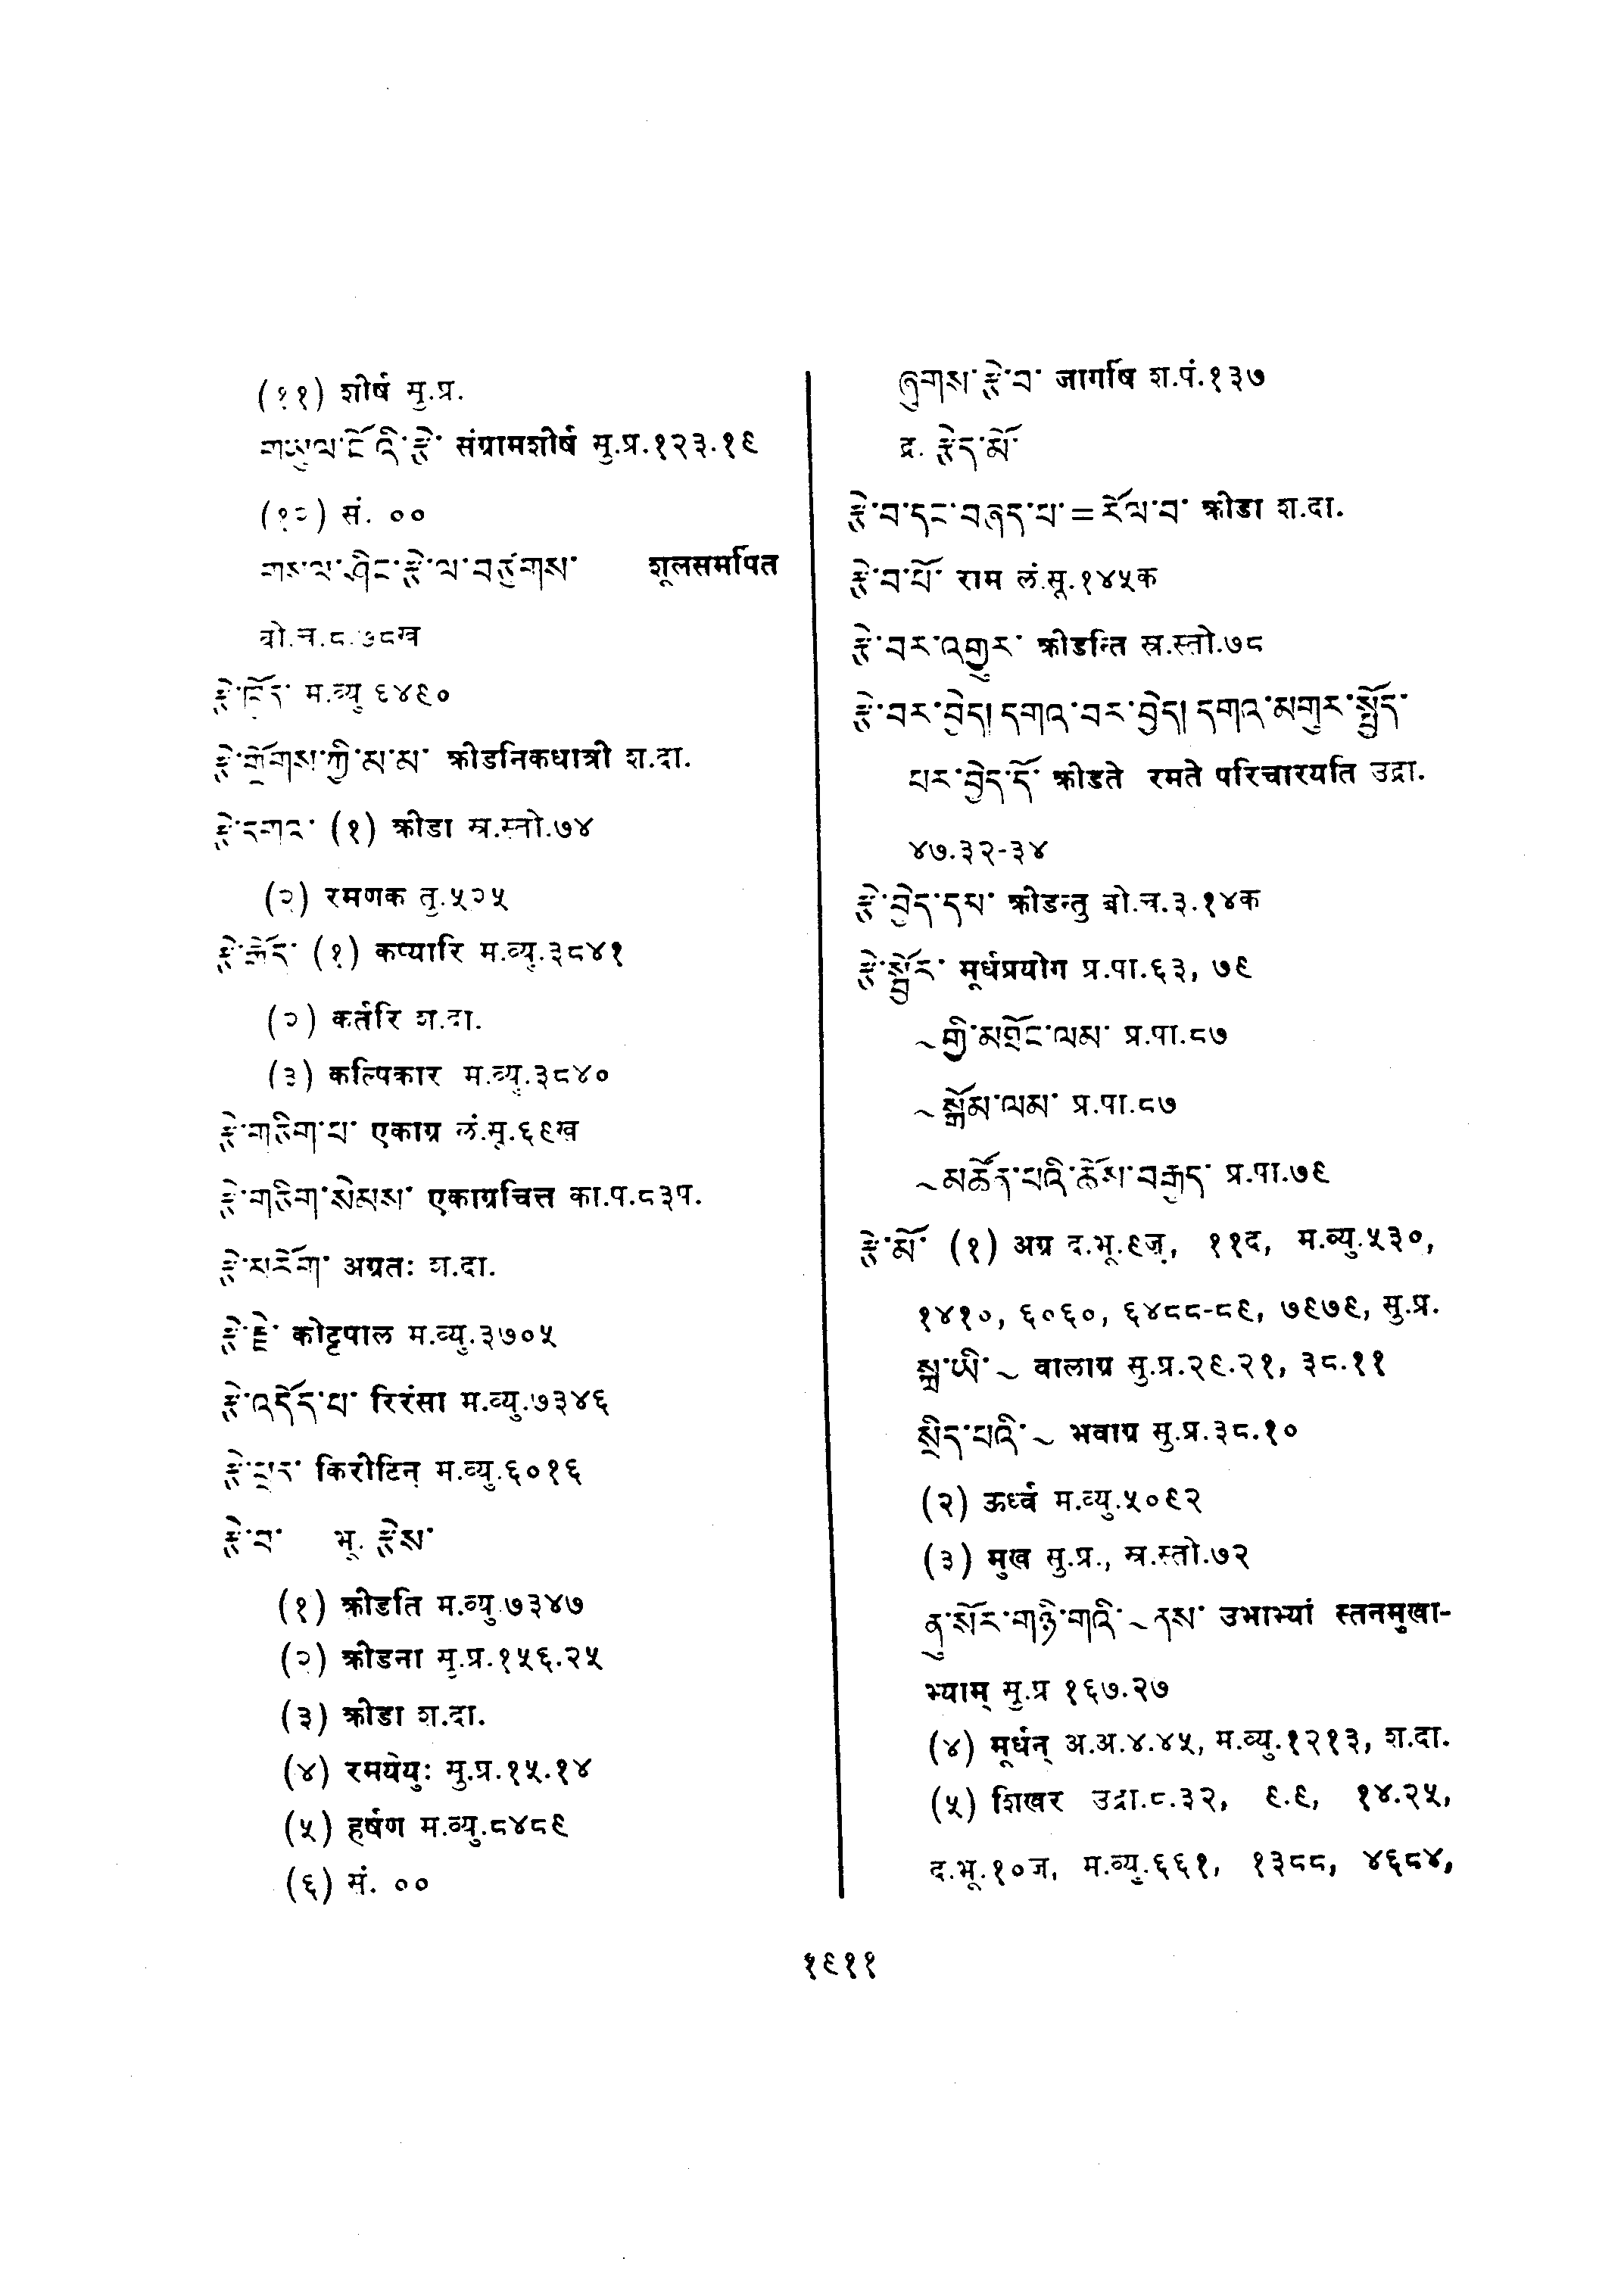 (११) शीर्ष सु.प्र.
གཡུལ་ངོའི་རྩེ་ संग्रामशीर्ष सु.प्र.१२३.१९
(१२) सं. ००
གསལ་ཤིང་རྩེ་ལ་བཙུགས་ शूलसमर्पित
बो.च.८.७८ख
རྩེ་ म.व्यु ६४९०
རྩེ་གྲོགས་ཀྱི་མ་མ་ क्रीडनिकधात्री श.दा.
རྩེ་དགའ་ (१) क्रीडा स्र.स्तो.७४
(२) रमणक तृ.५२५
རྩེ་རྒོད་ (१) कप्यारि म.व्यु.३८४१
(२) कर्तरि श.दा.
(३) कल्पिकार म.व्यु.३८४०
རྩེ་གཅིག་པ་ एकाग्र लं.सू.६९ख
རྩེ་གཅིག་སེམས་ एकाग्रचित्त का.प.८३प.
རྩེ་མདོག་ अग्रतः श.दा.
རྩེ་རྗེ་ कोट्टपाल म.व्यु.३७०५
རྩེ་འདོད་པ་ रिरंसा म.व्यु.७३४६
རྩེ་ཕྲན་ किरीटिन् म.व्यु.६०१६
རྩེ་བ་ भू. རྩེས་
(१) क्रीडति म.व्यु.७३४७
(२) क्रीडना सु.प्र.१५६.२५
(३) क्रीडा श.दा.
(४) रमयेयुः सु.प्र.१५.१४
(५) हर्षण म.व्यु.८४८९
(६) सं. ००
ཉུགས་རྩེ་བ་ जार्गाष श.पं.१३७
द्र. རྩེད་མོ་
རྩེ་བ་དང་བཞད་པ་=རོལ་བ་ क्रीडा श.दा.
རྩེ་བ་པོ་ राम लं.सू.१४५क
རྩེ་བར་འགྱུར་ क्रीडन्ति स्र.स्तो.७८
རྩེ་བར་བྱེད། དགའ་བར་བྱེད། དགའ་མགུར་སྤྱོད་
པར་བྱེད་དོ་ क्रीडते रमते परिचारयति उद्रा.
४७.३२-३४
རྩེ་བྱེད་དམ་ क्रीडन्तु बो.च.३.१४क
རྩེ་སྦྱོར་ मूर्धप्रयोग प्र.पा.६३, ७९
~གྱི་མཐོང་ལམ་ प्र.पा.८७
~སྒོམ་ལམ་ प्र.पा.८७
~མཚོན་པའི་ཆོས་བརྒྱད་ प्र.पा.७९
རྩེ་མོ་ (१) अग्र द.भू.९ज़, ११द, म.व्यु.५३०,
१४१०, ६०६०, ६४८८-८९, ७९७९, सु.प्र.
སྐྲ་ཡི་~ वालाग्र सु.प्र.२९.२१, ३८.११
སྲིད་པའི་~ भवाग्र सु.प्र.३८.१०
(२) ऊर्ध्व म.व्यु.५०९२
(३) मुख सु.प्र., स्र.स्तो.७२
ནུ་སོར་གཉི་གའི་~ནས་ उभाभ्यां स्तनमुखा-
भ्याम् सु.प्र १६७.२७
(४) मूर्धन् अ.अ.४.४५, म.व्यु.१२१३, श.दा.
(५) शिखर उद्रा.८.३२, ९.९, १४.२५,
द.भू.१०ज, म.व्यु.६६१, १३८८, ४६८४,
१९११